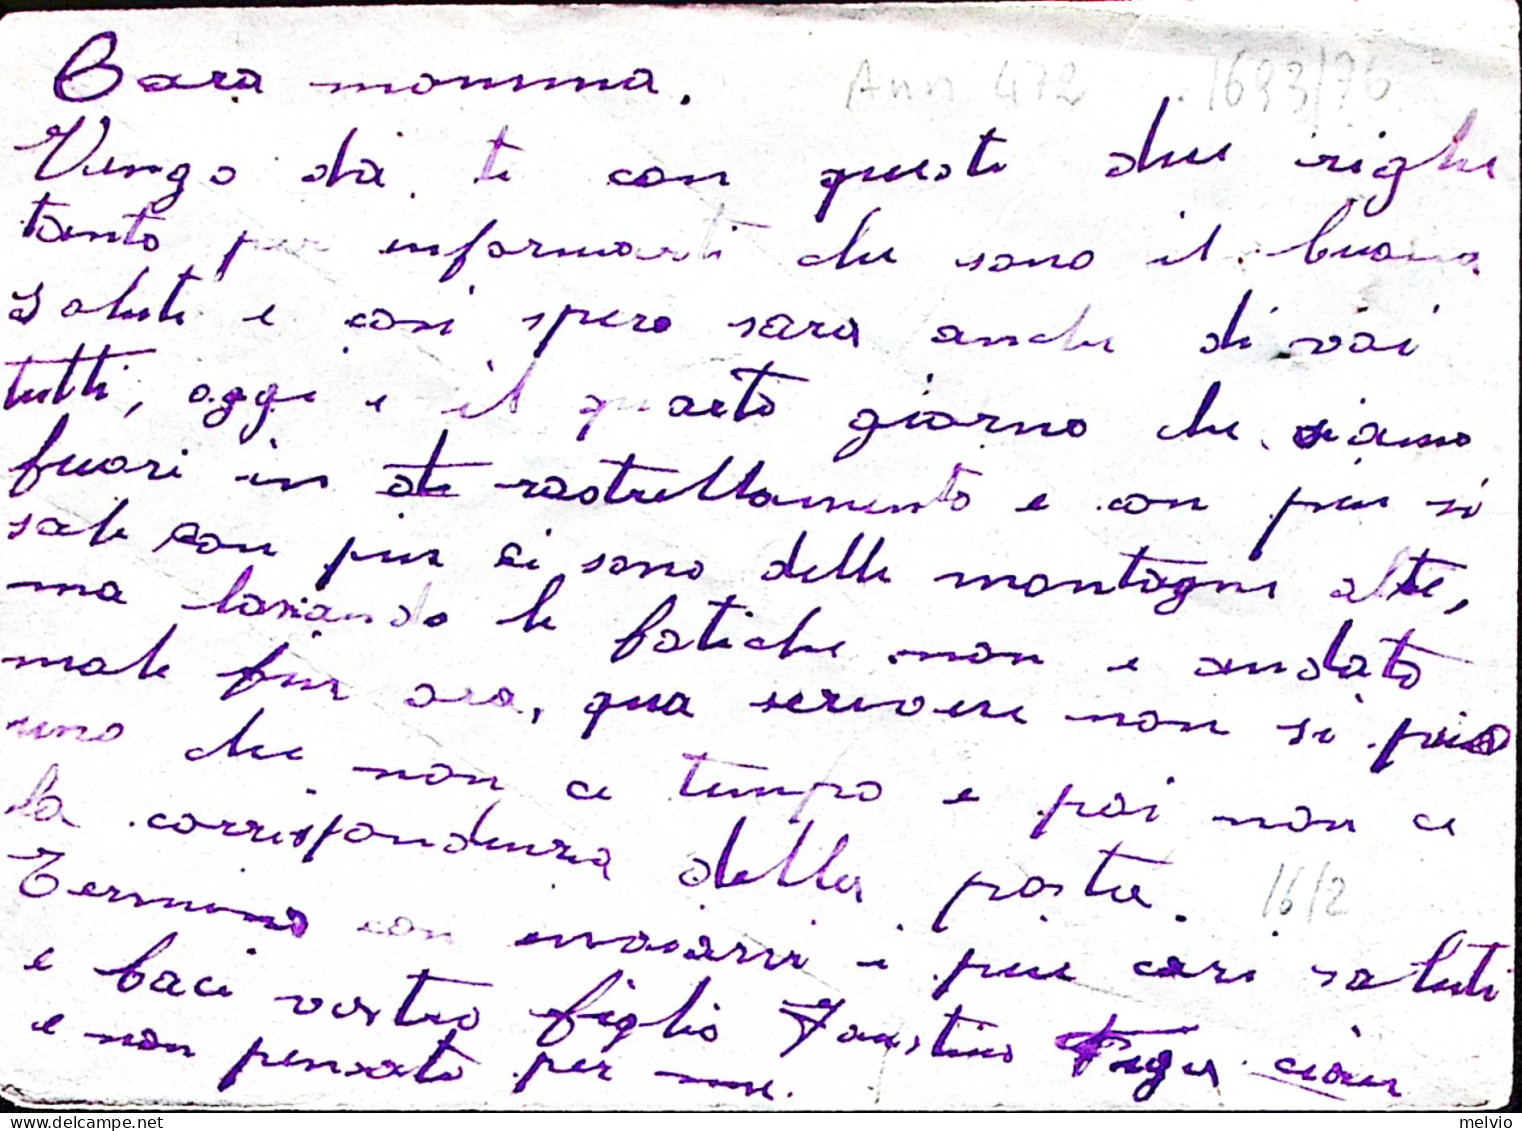 Cara mamma.
Ann 472 1693/76
Vengo da te con queste due righe
tanto per informarti che sono il buona
salute e cosi spero sara anche di voi
tutti, oggi e il quarto giorno che siamo
fuori in rastrellamento e con piu si
sale con piu ci sono delle montagne alte,
ma lasiando le fatiche non e andato
male fin ora, qua scrivere non si puo
uno che non ce tempo e poi non ce
la corrispondenza della posta. 16/2
Termino con inviarvi i piu cari saluti
e baci vostro figlio Faustino ciau
e non pensate per me.
melvio